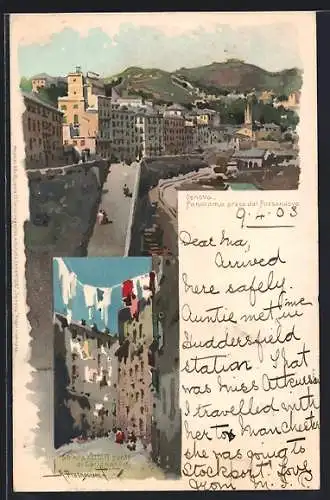 Genova
Panorama preso dal Passonuovo
9.4.03
Dear Ma,
Arrived
here safely.
Auntie met me in
Huddersfield
station I sat
was Miss Atkinson
I travelled with
her to Manchester
she was going to
Stockport Love
from M.
di Carignano